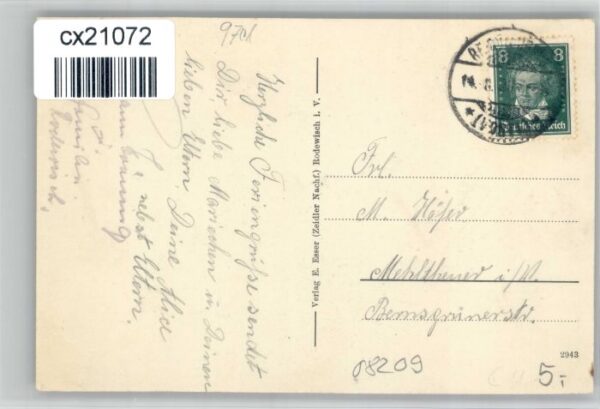 cx21072
97A
Herzliche Feriengrüße sendet
Dir, liebe Mariechen u. Deinen
lieben Eltern Deine Alice
T. nebst Eltern.
Rodewisch.
Verlag E. Esser (Zeidler Nachf.) Rodewisch i. V.
8 8
Deutsches Reich
Frl.
M. Höfer
Mehltheuer i/V.
Bernsgrünerstr.
08209
2943
5,-